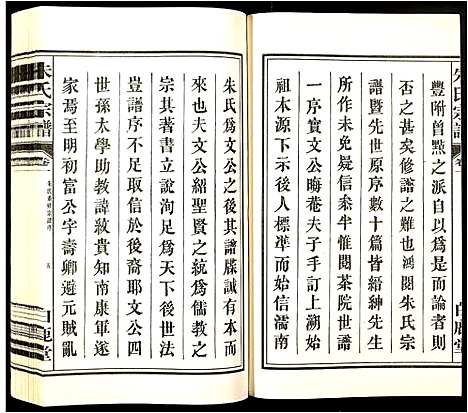 豐附曾㸃之派自以爲是而論者則
否之甚矣修譜之難也鴻閱朱氏宗
譜曁先世原序數十篇皆縉紳先生
所作未免疑信叅半惟閱茶院世譜
一序實文公晦菴夫子手訂上溯始
祖本源下示後人標準足知始信濡南
朱氏爲文公之後其譜牒誠有本而
來也夫文公紹聖賢之心爲儒教之
宗其著書立說洵足爲天下後世法
豈譜序不足取信於後裔耶文公四
世孫太學助教諱紋貴知南康軍遂
家焉至明初富公字壽卿避元賊亂
朱氏宗譜
卷
五
白鹿堂
朱氏宗譜
卷
白鹿堂